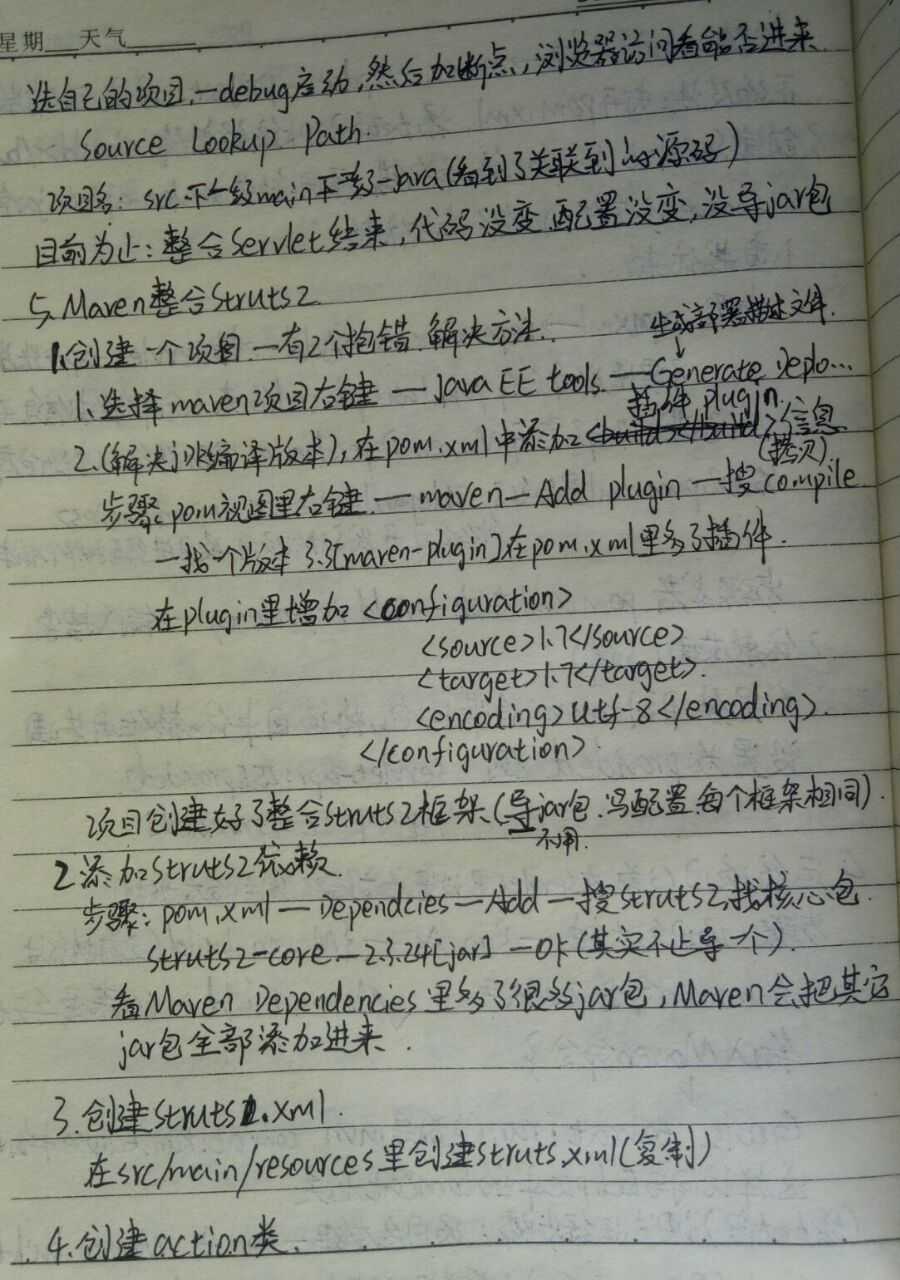 星期 天气
选自己的项目,一debug启动,然后加断点,浏览器访问看能否进来
Source Lookup Path.
项目名: src下一级main下一级-java(看到了关联到的源码)
目前为止:整合Servlet结束,代码没变.配置没变,没导jar包
5, Maven整合Struts2
1.创建一个项目 一有2个报错.解决方法.
生成部署描述文件.
1、选择maven项目右键 — java EE tools — Generate Deplo...
插件 plugin.
2.(解决jdk编译版本),在pom.xml中添加<build></build>信息
(拷贝)
步骤:pom视图里右键.—maven—Add plugin —搜compile
一找个版本 3.3[maven-plugin]在pom.xml里多了插件.
在plugin里增加 <configuration>
<source>1.7</source>
<target>1.7</target>.
<encoding>utf-8</encoding>.
</configuration>
项目创建好了整合struts2框架.(导jar包.写配置.每个框架相同).
不用.
2 添加struts2依赖.
步骤: pom.xml — Dependcies—Add—搜struts2,找核心包.
struts2-core — 2.3.24[jar] —OK(其实不止导一个).
看Maven Dependencies里多了很多jar包,Maven会把其它
jar包全部添加进来.
3.创建struts2.xml.
在src/main/resources里创建struts.xml(复制)
4.创建action类.